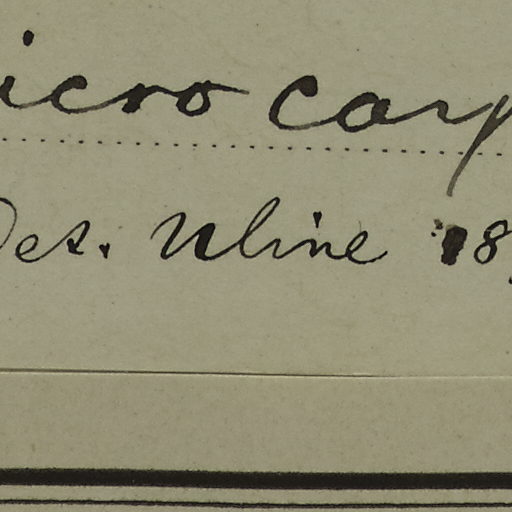 icro carp
Det. Uline '18